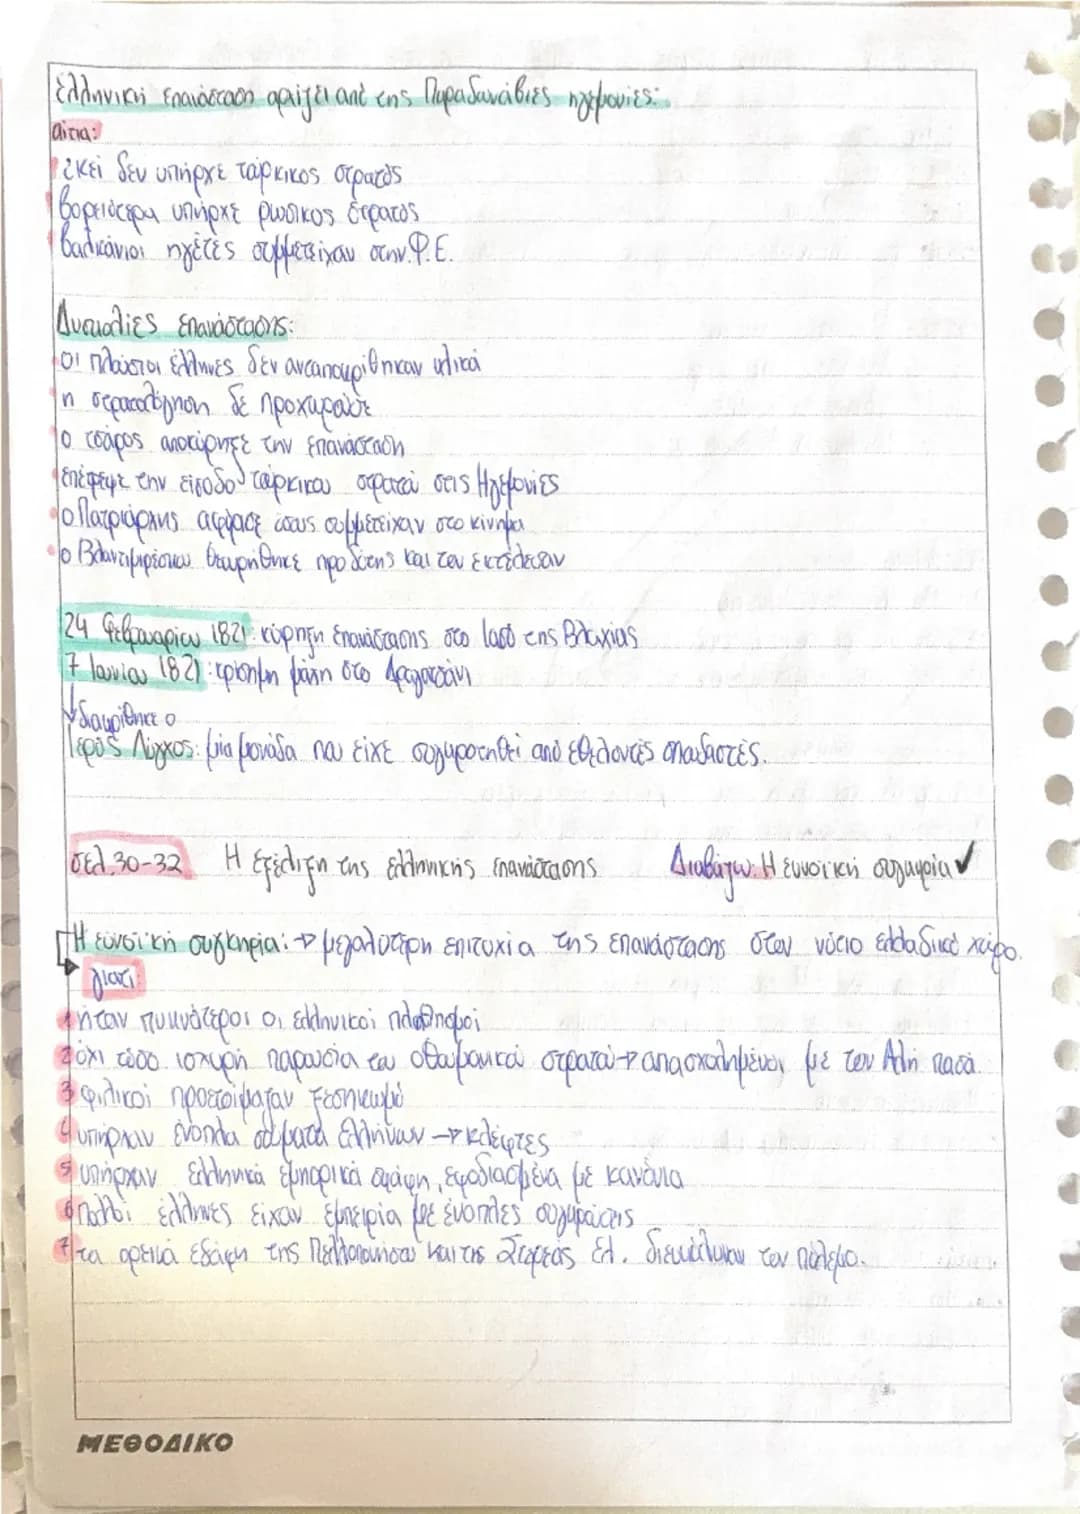 Ελληνική επανάσταση αρχίζει από της Παραδουνάβιες ηγεμονίες:
αίτια:
εκεί δεν υπήρχε τούρκικος στρατός
βορειότερα υπήρχε ρωσικος στρατός
βαλκάνιοι ηγέτες συμμετείχαν στην Φ.Ε.
Δυσκολίες επανάστασης:
οι πλούσιοι έλληνες δεν ανταποκρίθηκαν υλικά
η στρατολόγηση δε προχωρούσε
ο τσάρος αποκύρηξε την επανάσταση
επέτρεψε την είσοδο τούρκικου στρατού στις Ηγεμονίες
ο Πατριάρχης αφόρισε όσους συμμετείχαν στο κίνημα
ο Βλαντιμιρέσκου θεωρήθηκε προδότης και τον εκτέλεσαν
24 Φεβρουαρίου 1821: κύρηξη επανάστασης στο Ιάσιο της Βλαχίας
7 Ιουνίου 1821: κρίσιμη μάχη στο Δραγατσάνι
διακρίθηκε ο
Ιερός Λόχος: μία μονάδα που είχε συγκροτηθεί από εθελοντές σπουδαστές.
σελ. 30-32 Η εξέλιξη της ελληνικής επανάστασης Διαβάζω: Η ευνοϊκή συγκυρία ✓
Η ευνοϊκή συγκηρία: → μεγαλύτερη επιτυχία της επανάστασης στον νότιο ελλαδικό χώρο.
γιατί:
1 ήταν πυκνότεροι οι ελληνικοί πληθησμοί
2 όχι τόσο ισχυρή παρουσία του οθωμανικού στρατού → απασχολημένοι με τον Αλή πασά.
3 φιλικοί προετοίμαζαν ξεσηκωμό
4 υπήρχαν ένοπλα σώματα Ελλήνων → κλέφτες
5 υπήρχαν ελληνικά εμπορικά σκάφη, εφοδιασμένα με κανόνια
6 πολλοί έλληνες είχαν εμπειρία με ένοπλες συγκρούσεις
7 τα ορεινά εδάφη της Πελλοπονήσου και της Στερεάς Ελ. διευκόλυναν τον πόλεμο.
ΜΕΘΟΔΙΚΟ